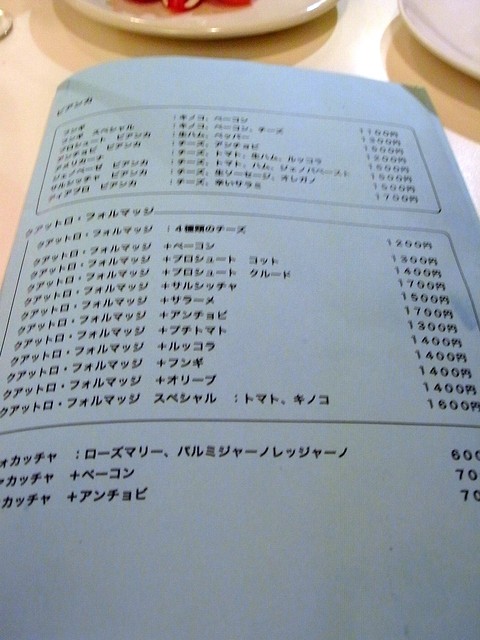 ビアンカ
フンギ ：キノコ、ベーコン 1100円
フンギ スペシャル ：キノコ、ベーコン、チーズ 1300円
プロシュート ビアンカ ：生ハム、ペッパー 1500円
アンチョビ ビアンカ ：チーズ、アンチョビ 1200円
アメリカーナ ：チーズ、トマト、生ハム、ルッコラ
ジェノベーゼ ビアンカ ：チーズ、トマト、ハム、ジェノバペースト 1500円
サルシッチャ ビアンカ ：チーズ、生ソーセージ、オレガノ 1500円
ディアブロ ビアンカ ：チーズ、辛いサラミ 1700円
クアットロ・フォルマッジ
クアットロ・フォルマッジ ：4種類のチーズ 1200円
クアットロ・フォルマッジ ＋ベーコン 1300円
クアットロ・フォルマッジ ＋プロシュート コット 1400円
クアットロ・フォルマッジ ＋プロシュート クルード 1700円
クアットロ・フォルマッジ ＋サルシッチャ 1500円
クアットロ・フォルマッジ ＋サラーメ 1700円
クアットロ・フォルマッジ ＋アンチョビ 1300円
クアットロ・フォルマッジ ＋プチトマト 1400円
クアットロ・フォルマッジ ＋ルッコラ 1400円
クアットロ・フォルマッジ ＋フンギ 1400円
クアットロ・フォルマッジ ＋オリーブ 1400円
クアットロ・フォルマッジ スペシャル ：トマト、キノコ 1600円
ォカッチャ ：ローズマリー、パルミジャーノレッジャーノ 600
カッチャ ＋ベーコン 70
カッチャ ＋アンチョビ 70